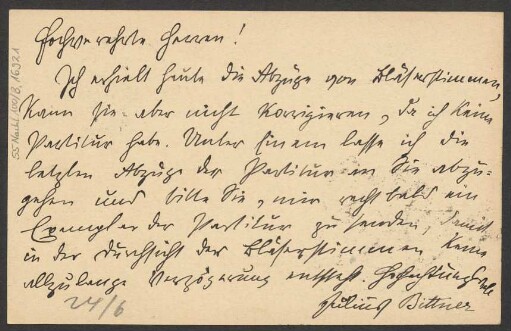 Hochverehrte Herren!
Ich erhielt heute die Abzüge von Bläserstimmen,
kann sie aber nicht korrigieren, da ich keine
Partitur habe. Unter Einem lasse ich die
letzten Abzüge der Partitur an Sie abzu-
gehen und bitte Sie, mir recht bald ein
Exemplar der Partitur zu senden, damit
in der Durchsicht der Bläserstimmen keine
allzulange Verzögerung entsteht. Hochachtungsvoll
Julius Bittner
24/6
55 Nachl 100/B, 16321